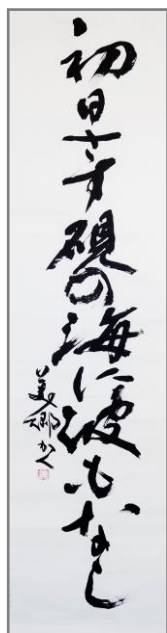 初日さす硯の海に波もなし
美郷かく